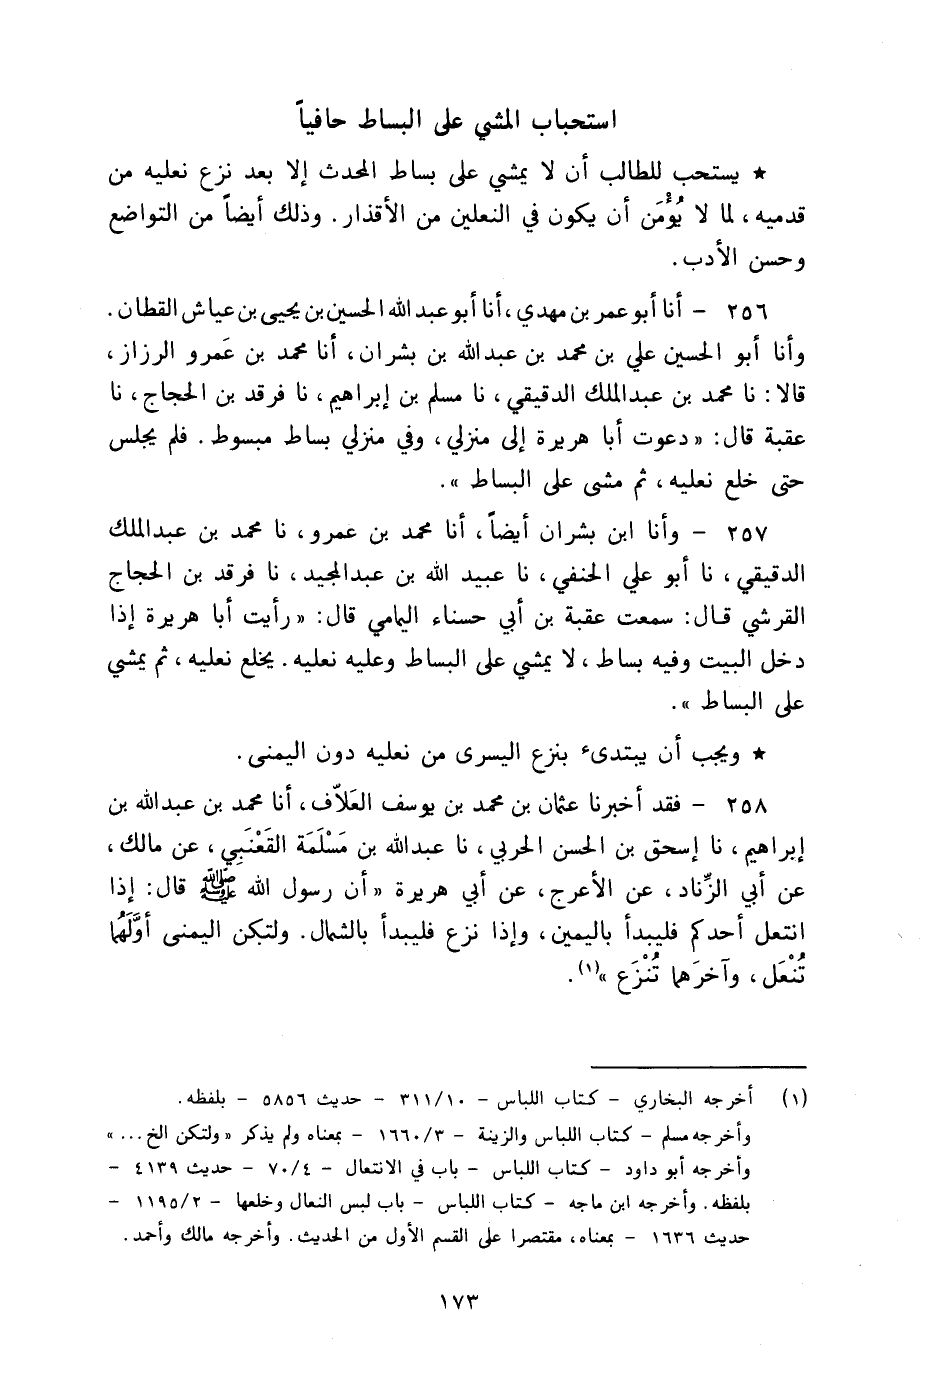 استحباب المشي على البساط حافياً
★ يستحب للطالب أن لا يمشي على بساط المحدث إلا بعد نزع نعليه من
قدميه، لما لا يُؤْمَن أن يكون في النعلين من الأقذار. وذلك أيضاً من التواضع
وحسن الأدب.
٢٥٦ - أنا أبو عمر بن مهدي، أنا أبو عبدالله الحسين بن يحيى بن عياش القطان.
وأنا أبو الحسين علي بن محمد بن عبدالله بن بشران، أنا محمد بن عَمرو الرزاز،
قالا: نا محمد بن عبدالملك الدقيقي، نا مسلم بن إبراهيم، نا فرقد بن الحجاج، نا
عقبة قال: «دعوت أبا هريرة إلى منزلي، وفي منزلي بساط مبسوط. فلم يجلس
حتى خلع نعليه، ثم مشى على البساط».
٢٥٧ - وأنا ابن بشران أيضاً، أنا محمد بن عمرو، نا محمد بن عبدالملك
الدقيقي، نا أبو علي الحنفي، نا عبيد الله بن عبدالمجيد، نا فرقد بن الحجاج
القرشي قال: سمعت عقبة بن أبي حسناء اليمامي قال: «رأيت أبا هريرة إذا
دخل البيت وفيه بساط، لا يمشي على البساط وعليه نعليه. يخلع نعليه، ثم يمشي
على البساط».
★ ويجب أن يبتدىء بنزع اليسرى من نعليه دون اليمنى.
٢٥٨ - فقد أخبرنا عثمان بن محمد بن يوسف العَلاّف، أنا محمد بن عبدالله بن
إبراهيم، نا إسحق بن الحسن الحربي، نا عبدالله بن مَسْلَمَة القَعْنَبِي، عن مالك،
عن أبي الزِّناد، عن الأعرج، عن أبي هريرة «أن رسول الله ﷺ قال: إذا
انتعل أحدكم فليبدأ باليمين، وإذا نزع فليبدأ بالشمال. ولتكن اليمنى أوَّلَهُما
تُنْعَل، وآخرَهما تُنْزَع»(١).
(١) أخرجه البخاري - كتاب اللباس - ٣١١/١٠ - حديث ٥٨٥٦ - بلفظه.
وأخرجه مسلم - كتاب اللباس والزينة - ١٦٦٠/٣ - بمعناه ولم يذكر «ولتكن الخ...»
وأخرجه أبو داود - كتاب اللباس - باب في الانتعال - ٧٠/٤ - حديث ٤١٣٩ -
بلفظه. وأخرجه ابن ماجه - كتاب اللباس - باب لبس النعال وخلعها - ١١٩٥/٢ -
حديث ١٦٣٦ - بمعناه، مقتصرا على القسم الأول من الحديث. وأخرجه مالك وأحمد.
١٧٣